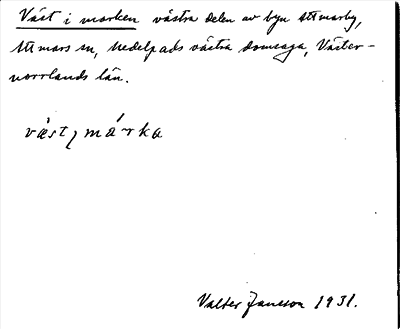 Väst i marken västra delen av byn Attmarby,
Attmars sn, Medelpads västra domsaga, Väster-
norrlands län.
väst, márka
Valter Jansson 1931.